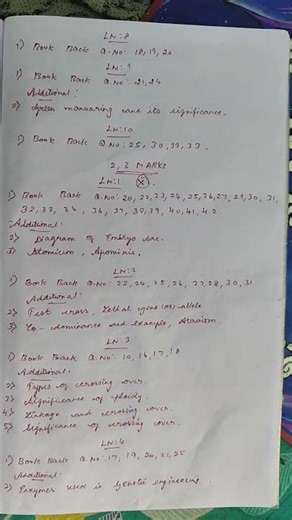 LN:8
1) Book Back Q.No: 18, 19, 20
LN:9
1) Book Back Q.No: 21, 24
Additional:
2) Green manuring and its significance.
LN:10
1) Book Back Q.No: 25, 30, 32, 33.
2, 3 MARKS
LN:1
1) Book Back Q.No: 20, 22, 23, 24, 25, 26, 27, 29, 30, 31,
32, 33, 34, 36, 37, 38, 39, 40, 41, 42.
Additional:
2) Diagram of Embryo sac.
3)
LN:2
1) Book Back Q.No: 22, 24, 25, 26, 27, 28, 30, 31
Additional:
2) Test cross, Lethal gene (or) allele
3) Co-dominance and example, Atavism.
LN:3
1) Book Back Q.No: 10, 16, 17, 18
Additional.
2) Types of crossing over.
3) Significance of ploidy.
4) Linkage and crossing over.
5) Significance of crossing over.
LN:4
1) Book Back Q.No: 17, 19, 20, 21, 25
Additional:
2) Enzymes used in Genetic engineering